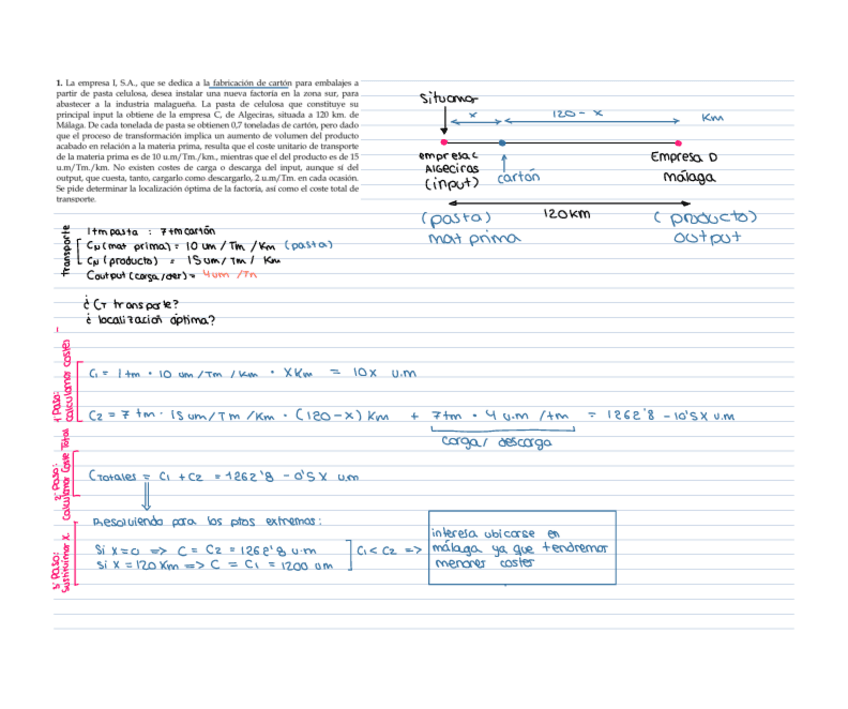 1. La empresa I, S.A., que se dedica a la fabricación de cartón para embalajes a
partir de pasta celulosa, desea instalar una nueva factoría en la zona sur, para
abastecer a la industria malagueña. La pasta de celulosa que constituye su
principal input la obtiene de la empresa C, de Algeciras, situada a 120 km. de
Málaga. De cada tonelada de pasta se obtienen 0,7 toneladas de cartón, pero dado
que el proceso de transformación implica un aumento de volumen del producto
acabado en relación a la materia prima, resulta que el coste unitario de transporte
de la materia prima es de 10 u.m/Tm./km., mientras que el del producto es de 15
u.m/Tm./km. No existen costes de carga o descarga del input, aunque sí del
output, que cuesta, tanto, cargarlo como descargarlo, 2 u.m/Tm. en cada ocasión.
Se pide determinar la localización óptima de la factoría, así como el coste total de
transporte.
situamos
x
120 - x
Km
empresa C
ALGECIRAS
(input)
cartón
Empresa D
málaga
120 Km
(pasta)
mat prima
(producto)
output
Transporte
1 tm pasta : 7 tm cartón
CN (mat prima) = 10 um / Tm / Km (pasta)
CN (producto) = 15 um / Tm / Km
Coutput (carga/des) = 4 um / Tn
¿ CT transporte?
¿ localización óptima?
1 Paso:
calculamos costes
C1 = 1 tm · 10 um / Tm / Km · X Km = 10x u.m
C2 = 7 tm · 15 um / Tm / Km · (120 - x) Km + 7 tm · 4 u.m / tm = 1262'8 - 10'5 X u.m
carga / descarga
2 Paso:
Calculamos Coste Total
Ctotales = C1 + C2 = 1262'8 - 0'5 X u.m
3 Paso:
Sustituimos X
Resolviendo para los ptos extremos:
Si X = 0 => C = C2 = 1262'8 u.m
Si X = 120 Km => C = C1 = 1200 um
C1 < C2 =>
interesa ubicarse en
málaga ya que tendremos
menores costes